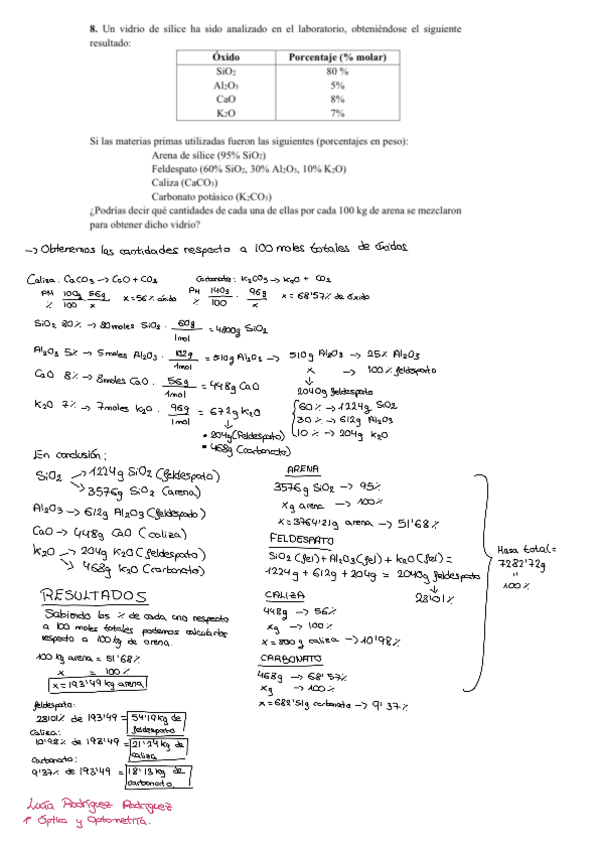 8. Un vidrio de sílice ha sido analizado en el laboratorio, obteniéndose el siguiente
resultado:
Óxido Porcentaje (% molar)
SiO₂ 80 %
Al₂O₃ 5%
CaO 8%
K₂O 7%
Si las materias primas utilizadas fueron las siguientes (porcentajes en peso):
Arena de sílice (95% SiO₂)
Feldespato (60% SiO₂, 30% Al₂O₃, 10% K₂O)
Caliza (CaCO₃)
Carbonato potásico (K₂CO₃)
¿Podrías decir qué cantidades de cada una de ellas por cada 100 kg de arena se mezclaron
para obtener dicho vidrio?
→ Obtenemos las cantidades respecto a 100 moles totales de óxidos
Caliza: CaCO₃ → CaO + CO₂
PM 100g 56g
% 100 x
x = 56% óxido
Carbonato: K₂CO₃ → K₂O + CO₂
PM 140g 96g
% 100 x
x = 68'57% de óxido
SiO₂ 80% → 80 moles SiO₂ · 60g / 1mol = 4800g SiO₂
Al₂O₃ 5% → 5 moles Al₂O₃ · 102g / 1mol = 510g Al₂O₃ → 510g Al₂O₃ → 25% Al₂O₃
x → 100% feldespato
2040g feldespato
60% → 1224g SiO₂
30% → 612g Al₂O₃
10% → 204g K₂O
CaO 8% → 8 moles CaO · 56g / 1mol = 448g CaO
K₂O 7% → 7 moles K₂O · 96g / 1mol = 672g K₂O
• 204g (Feldespato)
• 468g (carbonato)
En conclusión:
SiO₂ → 1224g SiO₂ (feldespato)
→ 3576g SiO₂ (arena)
Al₂O₃ → 612g Al₂O₃ (feldespato)
CaO → 448g CaO (caliza)
K₂O → 204g K₂O (feldespato)
→ 468g K₂O (carbonato)
ARENA
3576g SiO₂ → 95%
xg arena → 100%
x = 3764'21g arena → 51'68%
FELDESPATO
SiO₂ (fel) + Al₂O₃ (fel) + K₂O (fel) =
1224g + 612g + 204g = 2040g feldespato
28'01%
CALIZA
448g → 56%
xg → 100%
x = 800g caliza → 10'98%
CARBONATO
468g → 68'57%
xg → 100%
x = 682'51g carbonato → 9'37%
Masa total =
7282'72g
"
100%
RESULTADOS
Sabiendo los % de cada uno respecto
a 100 moles totales podemos calcularlos
respecto a 100kg de arena.
100 kg arena = 51'68%
x = 100%
x = 193'49 kg arena
feldespato:
28'01% de 193'49 = 54'19 kg de feldespato
Caliza:
10'98% de 193'49 = 21'24 kg de caliza
Carbonato:
9'37% de 193'49 = 18'13 kg de carbonato.
Lucía Rodríguez Rodríguez
1º Óptica y Optometría.